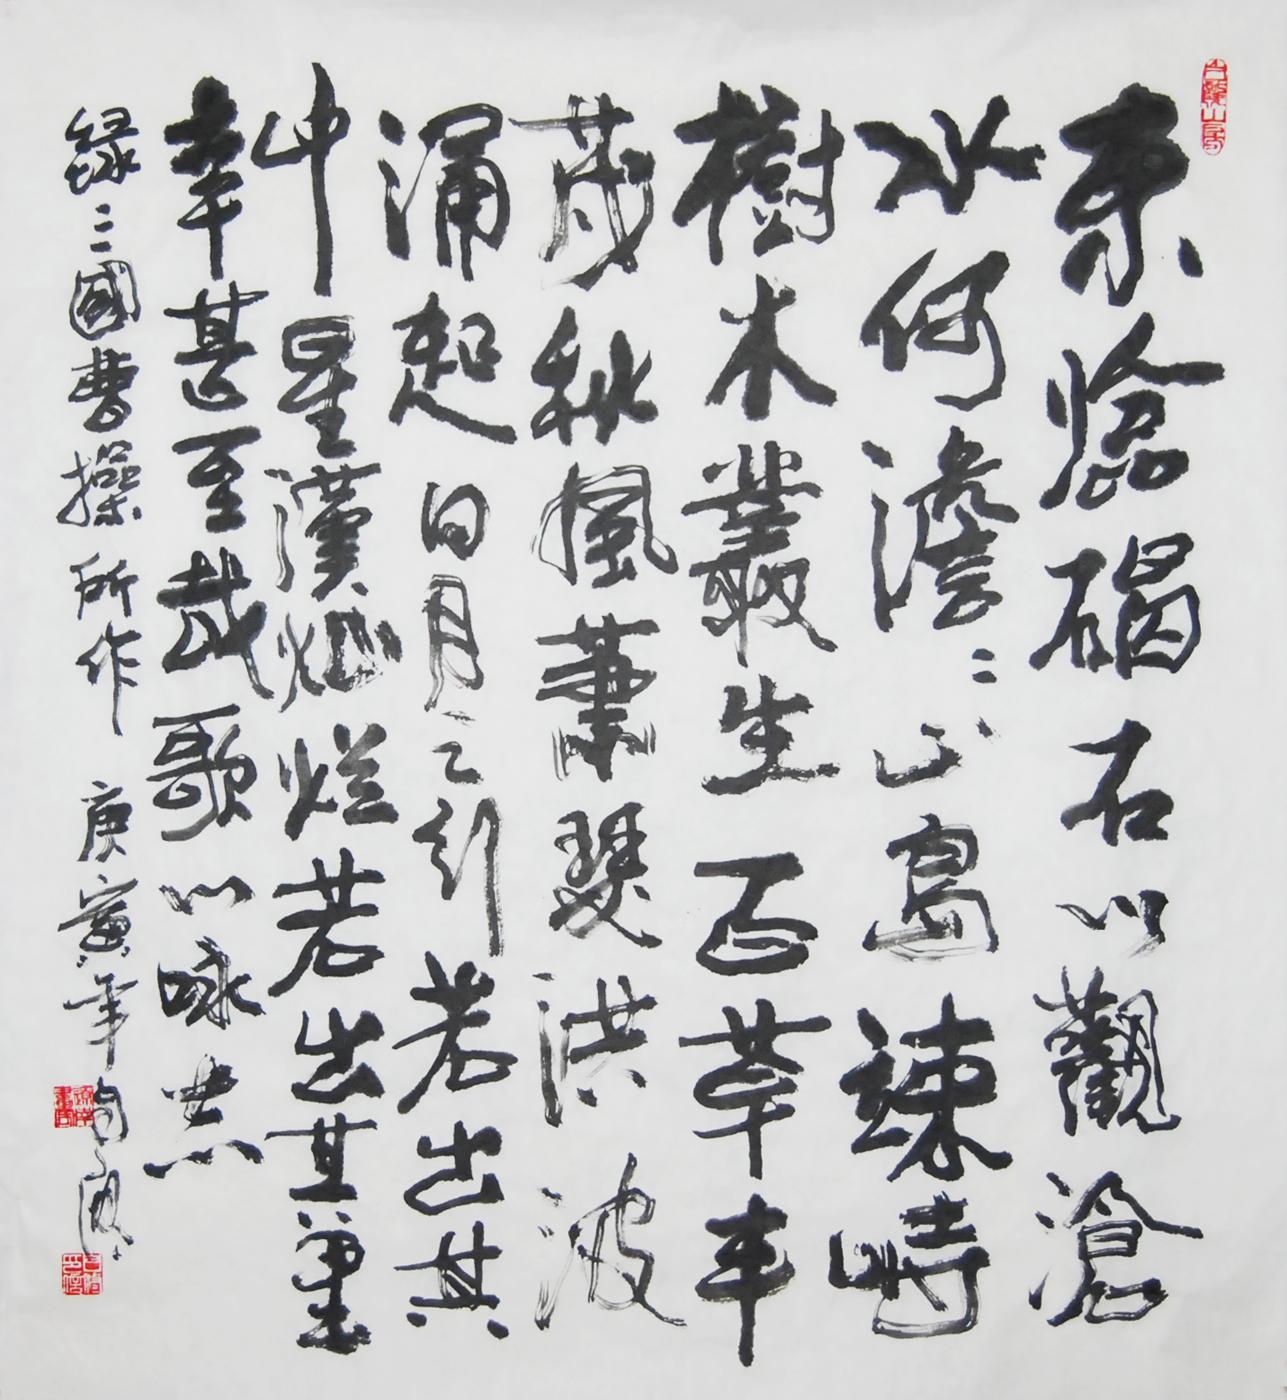 東临碣石以觀滄
水何澹〻山島竦峙
樹木叢生百草丰
茂秋風蕭瑟洪波
涌起日月之引若出其
中星漢燦爛若出其里
幸甚至哉歌以咏志
錄三國曹操所作 庚寅年